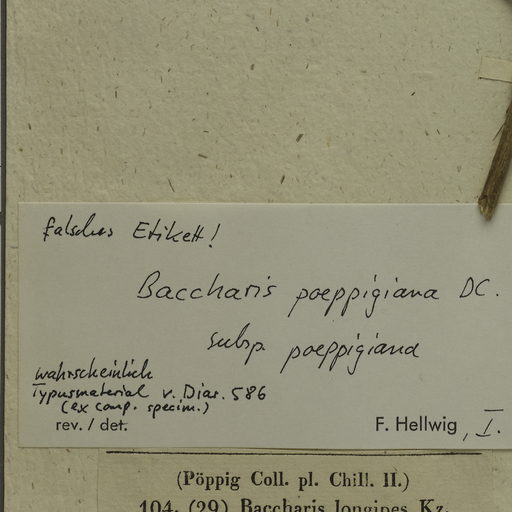 falsches Etikett!
Baccharis poeppigiana DC.
subsp. poeppigiana
wahrscheinlich
Typusmaterial v. Diar. 586
(ex comp. specim.)
rev. / det.
F. Hellwig, I.
(Pöppig Coll. pl. Chill. II.)
104. (29) Baccharis longipes Kz.